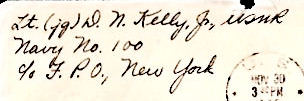 Lt. (jg) D. N. Kelly, Jr., USNR
Navy No. 100
c/o F.P.O., New York
NOV 30
3 PM